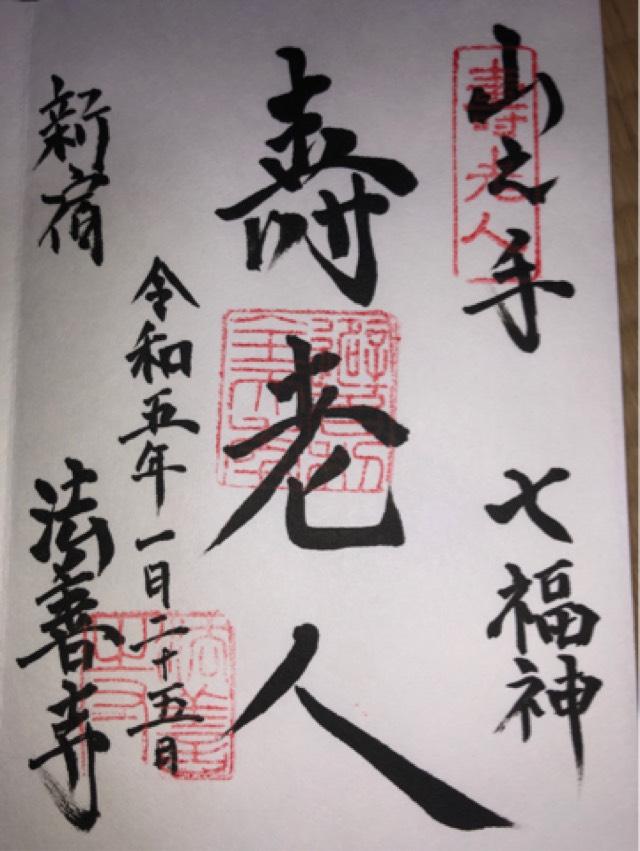 山之手 七福神
壽老人
壽老人
令和五年一月二十五日
新宿 法善寺